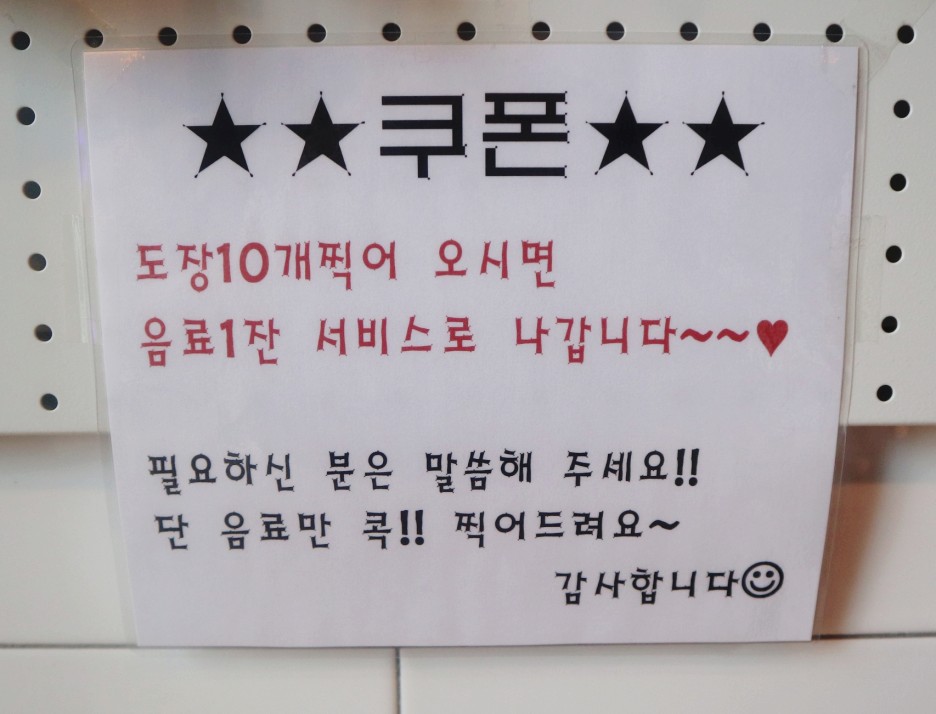 ★★쿠폰★★
도장10개찍어 오시면
음료1잔 서비스로 나갑니다~~♥
필요하신 분은 말씀해 주세요!!
단 음료만 콕!! 찍어드려요~
감사합니다☺